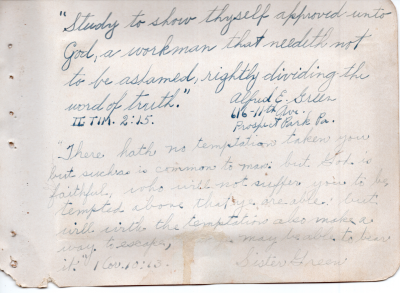 "Study to show thyself approved unto
God, a workman that needeth not
to be ashamed, rightly dividing the
word of truth."
II TIM. 2:15.
Alfred E. Green
616-11th Ave.
Prospect Park Pa.
"There hath no temptation taken you
but such as is common to man: but God is
faithful, who will not suffer you to be
tempted above that ye are able; but
will with the temptation also make a
way to escape, may be able to bear
it." 1 Cor. 10:13.
Sister Green